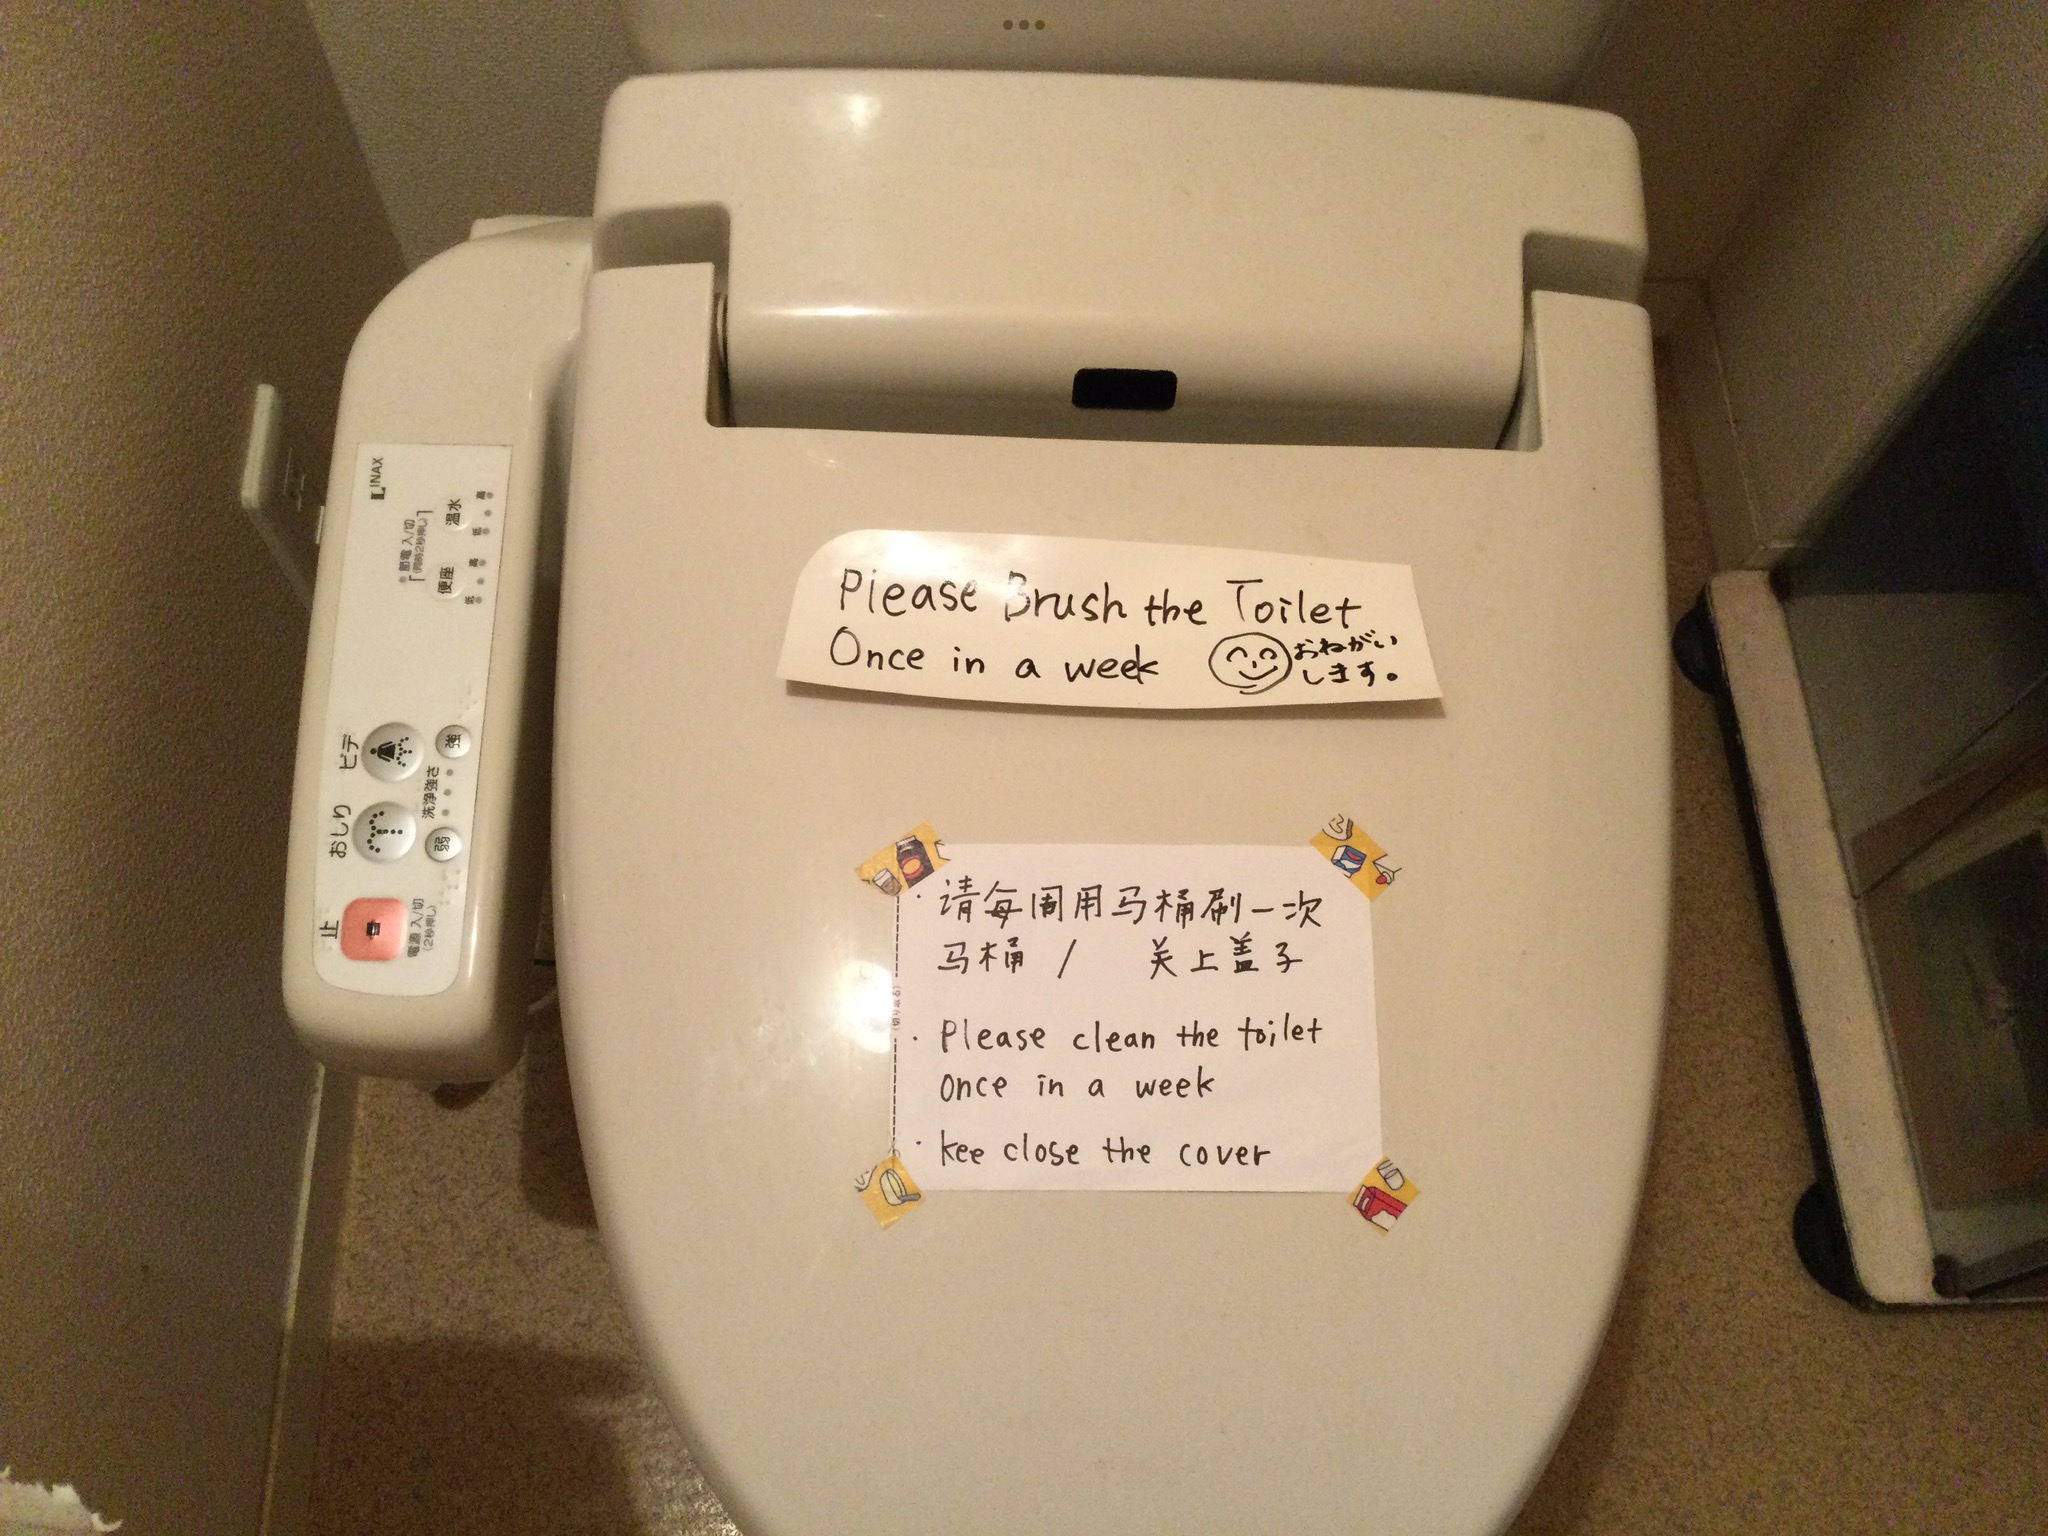 Please Brush the Toilet
Once in a week
おねがい
します。
请每周用马桶刷一次
马桶 / 关上盖子
· Please clean the toilet
once in a week
· kee close the cover
(切り取る)
INAX
節電 入/切
(同時2秒押し)
便座
温水
低
高
低
高
ビデ
おしり
洗浄強さ
強
弱
止
電源 入/切
(2秒押し)